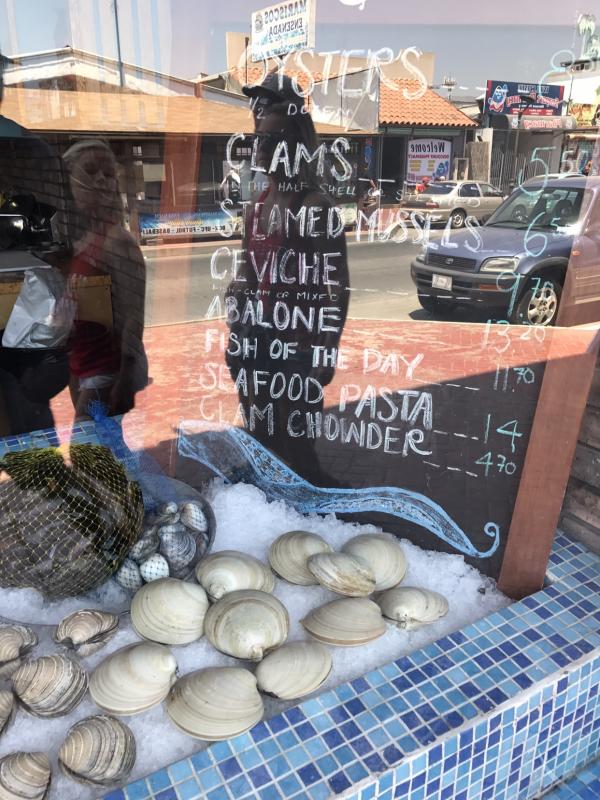 MARISCOS
ENSENADA
OYSTERS
1/2 DOZEN
CLAMS 5.50
IN THE HALF SHELL
STEAMED MUSSELS 6
CEVICHE 9.70
FISH-CLAM OR MIXED
ABALONE 13.20
FISH OF THE DAY 11.70
SEAFOOD PASTA 14
CLAM CHOWDER 4.70
Welcome
BOX - UFC - FUTBOL - BASEBALL